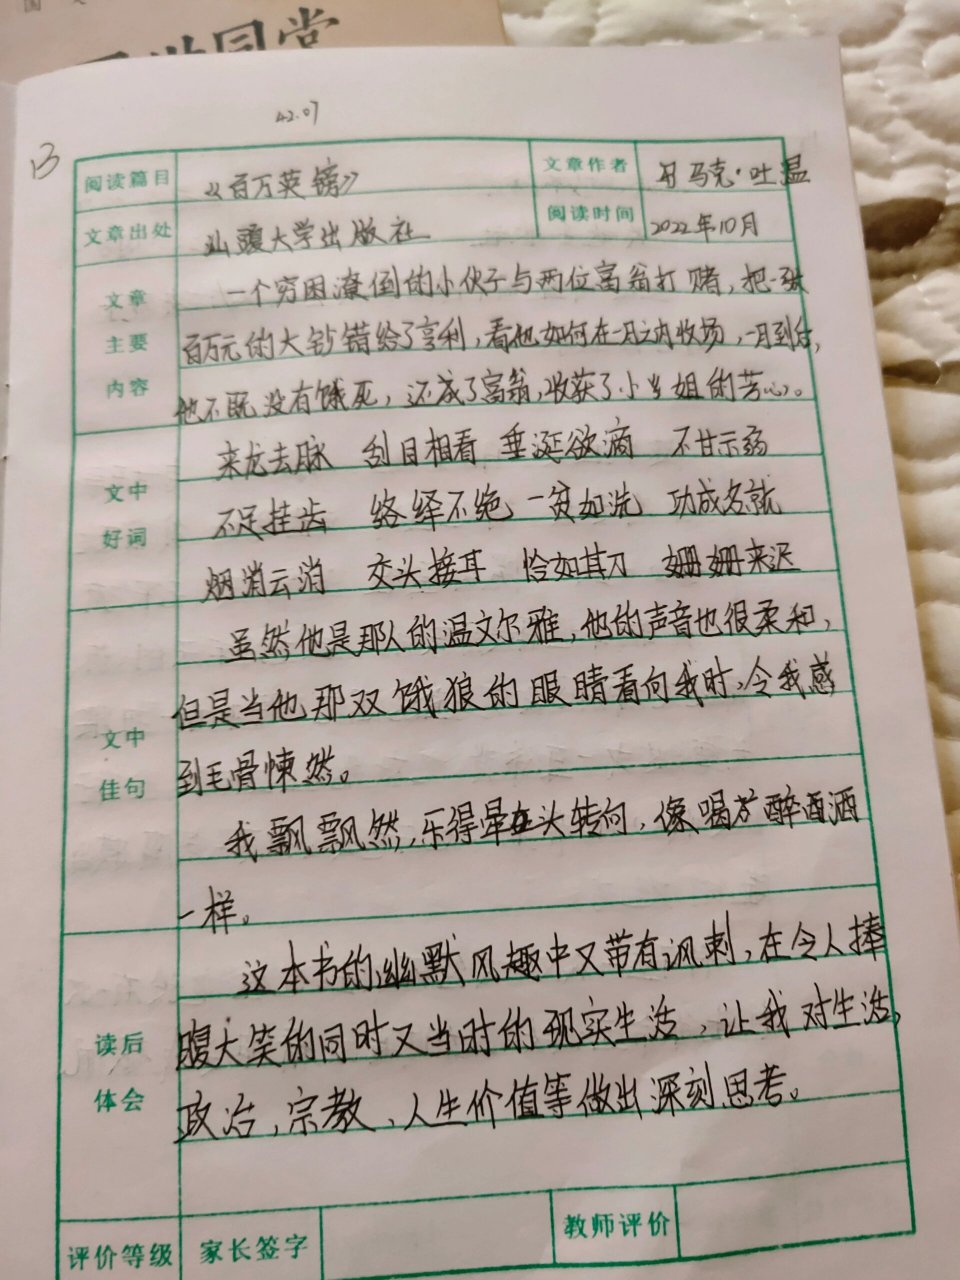 42.07
13
阅读篇目 《百万英镑》 文章作者 马克·吐温
文章出处 汕头大学出版社 阅读时间 2022年10月
文章主要内容
一个穷困潦倒的小伙子与两位富翁打赌,把一张
百万元的大钞错给了亨利,看他如何在一月之内收场,一月到后,
他不既没有饿死,还成了富翁,收获了小姐的芳心。
文中好词
来龙去脉 刮目相看 垂涎欲滴 不甘示弱
不足挂齿 络绎不绝 一贫如洗 功成名就
烟消云消 交头接耳 恰如其刀 姗姗来迟
文中佳句
虽然他是那么的温文尔雅,他的声音也很柔和,
但是当他那双饿狼的眼睛看向我时,令我感
到毛骨悚然。
我飘飘然,乐得晕头转向,像喝醉酒
一样。
读后体会
这本书的幽默风趣中又带有讽刺,在令人捧
腹大笑的同时又当时的现实生活,让我对生活,
政治,宗教,人生价值等做出深刻思考。
评价等级 家长签字 教师评价